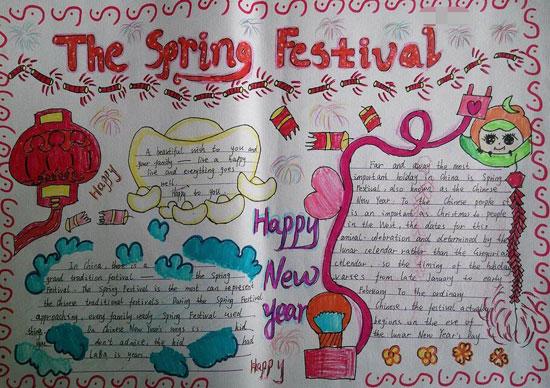 The Spring Festival
A beautiful wish to you and
your family — live a happy
live and everything goes
well.
Happy to you
Happy
Happy
New
year
Happy
In China, there is a
grand tradition the Spring
Festival. The Spring Festival is the most can represent
the Chinese traditional festivals. During the Spring Festival
approaching, every family ready Spring Festival used
In Chinese New Year's is kid
don't admire, the kid had
LaBa is year
Far and away the most
important holiday in China is Spring
Festival, also known as the Chinese
New Year. To the Chinese people it
is as important as Christmas to people
in the West. the dates for this
annual celebration and determined by the
lunar calendar rather than the Gregorian
calendar, so the timing of the holiday
varses from late January to early
February. To the ordinary
Chinese, the festival actually
begins on the eve of
the lunar New Year's Day